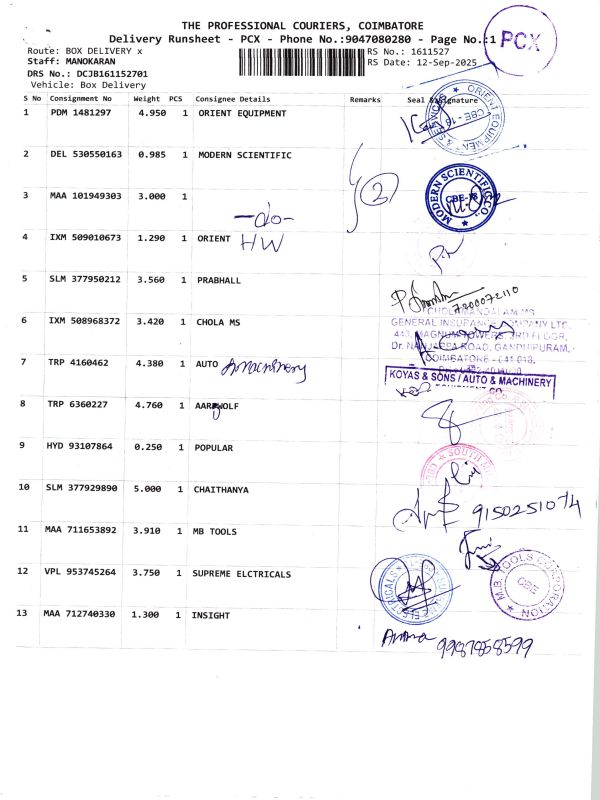 THE PROFESSIONAL COURIERS, COIMBATORE
Delivery Runsheet - PCX - Phone No.:9047080280 - Page No.:1
PCX
Route: BOX DELIVERY x
RS No.: 1611527
Staff: MANOKARAN
RS Date: 12-Sep-2025
DRS No.: DCJB161152701
Vehicle: Box Delivery
S No Consignment No Weight PCS Consignee Details Remarks Seal & Signature
1 PDM 1481297 4.950 1 ORIENT EQUIPMENT
ORIENT EQUIPMEN
2 DEL 530550163 0.985 1 MODERN SCIENTIFIC
MODERN SCIENTIFIC CO.,
3 MAA 101949303 3.000 1
-do-
2
4 IXM 509010673 1.290 1 ORIENT
HW
5 SLM 377950212 3.560 1 PRABHALL
7200072110
6 IXM 508968372 3.420 1 CHOLA MS
CHOLAMANDALAM MS
GENERAL INSURANCE COMPANY LTD.
443, MAGNUM TOWERS, 3RD FLOOR,
Dr. NANJAPPA ROAD, GANDHIPURAM,
COIMBATORE - 641 018.
7 TRP 4160462 4.380 1 AUTO
KOYAS & SONS / AUTO & MACHINERY
8 TRP 6360227 4.760 1 AARWOLF
9 HYD 93107864 0.250 1 POPULAR
SOUTH
10 SLM 377929890 5.000 1 CHAITHANYA
9150251074
11 MAA 711653892 3.910 1 MB TOOLS
M.B. TOOLS CORPORATION
CBE
12 VPL 953745264 3.750 1 SUPREME ELCTRICALS
13 MAA 712740330 1.300 1 INSIGHT
9987858599